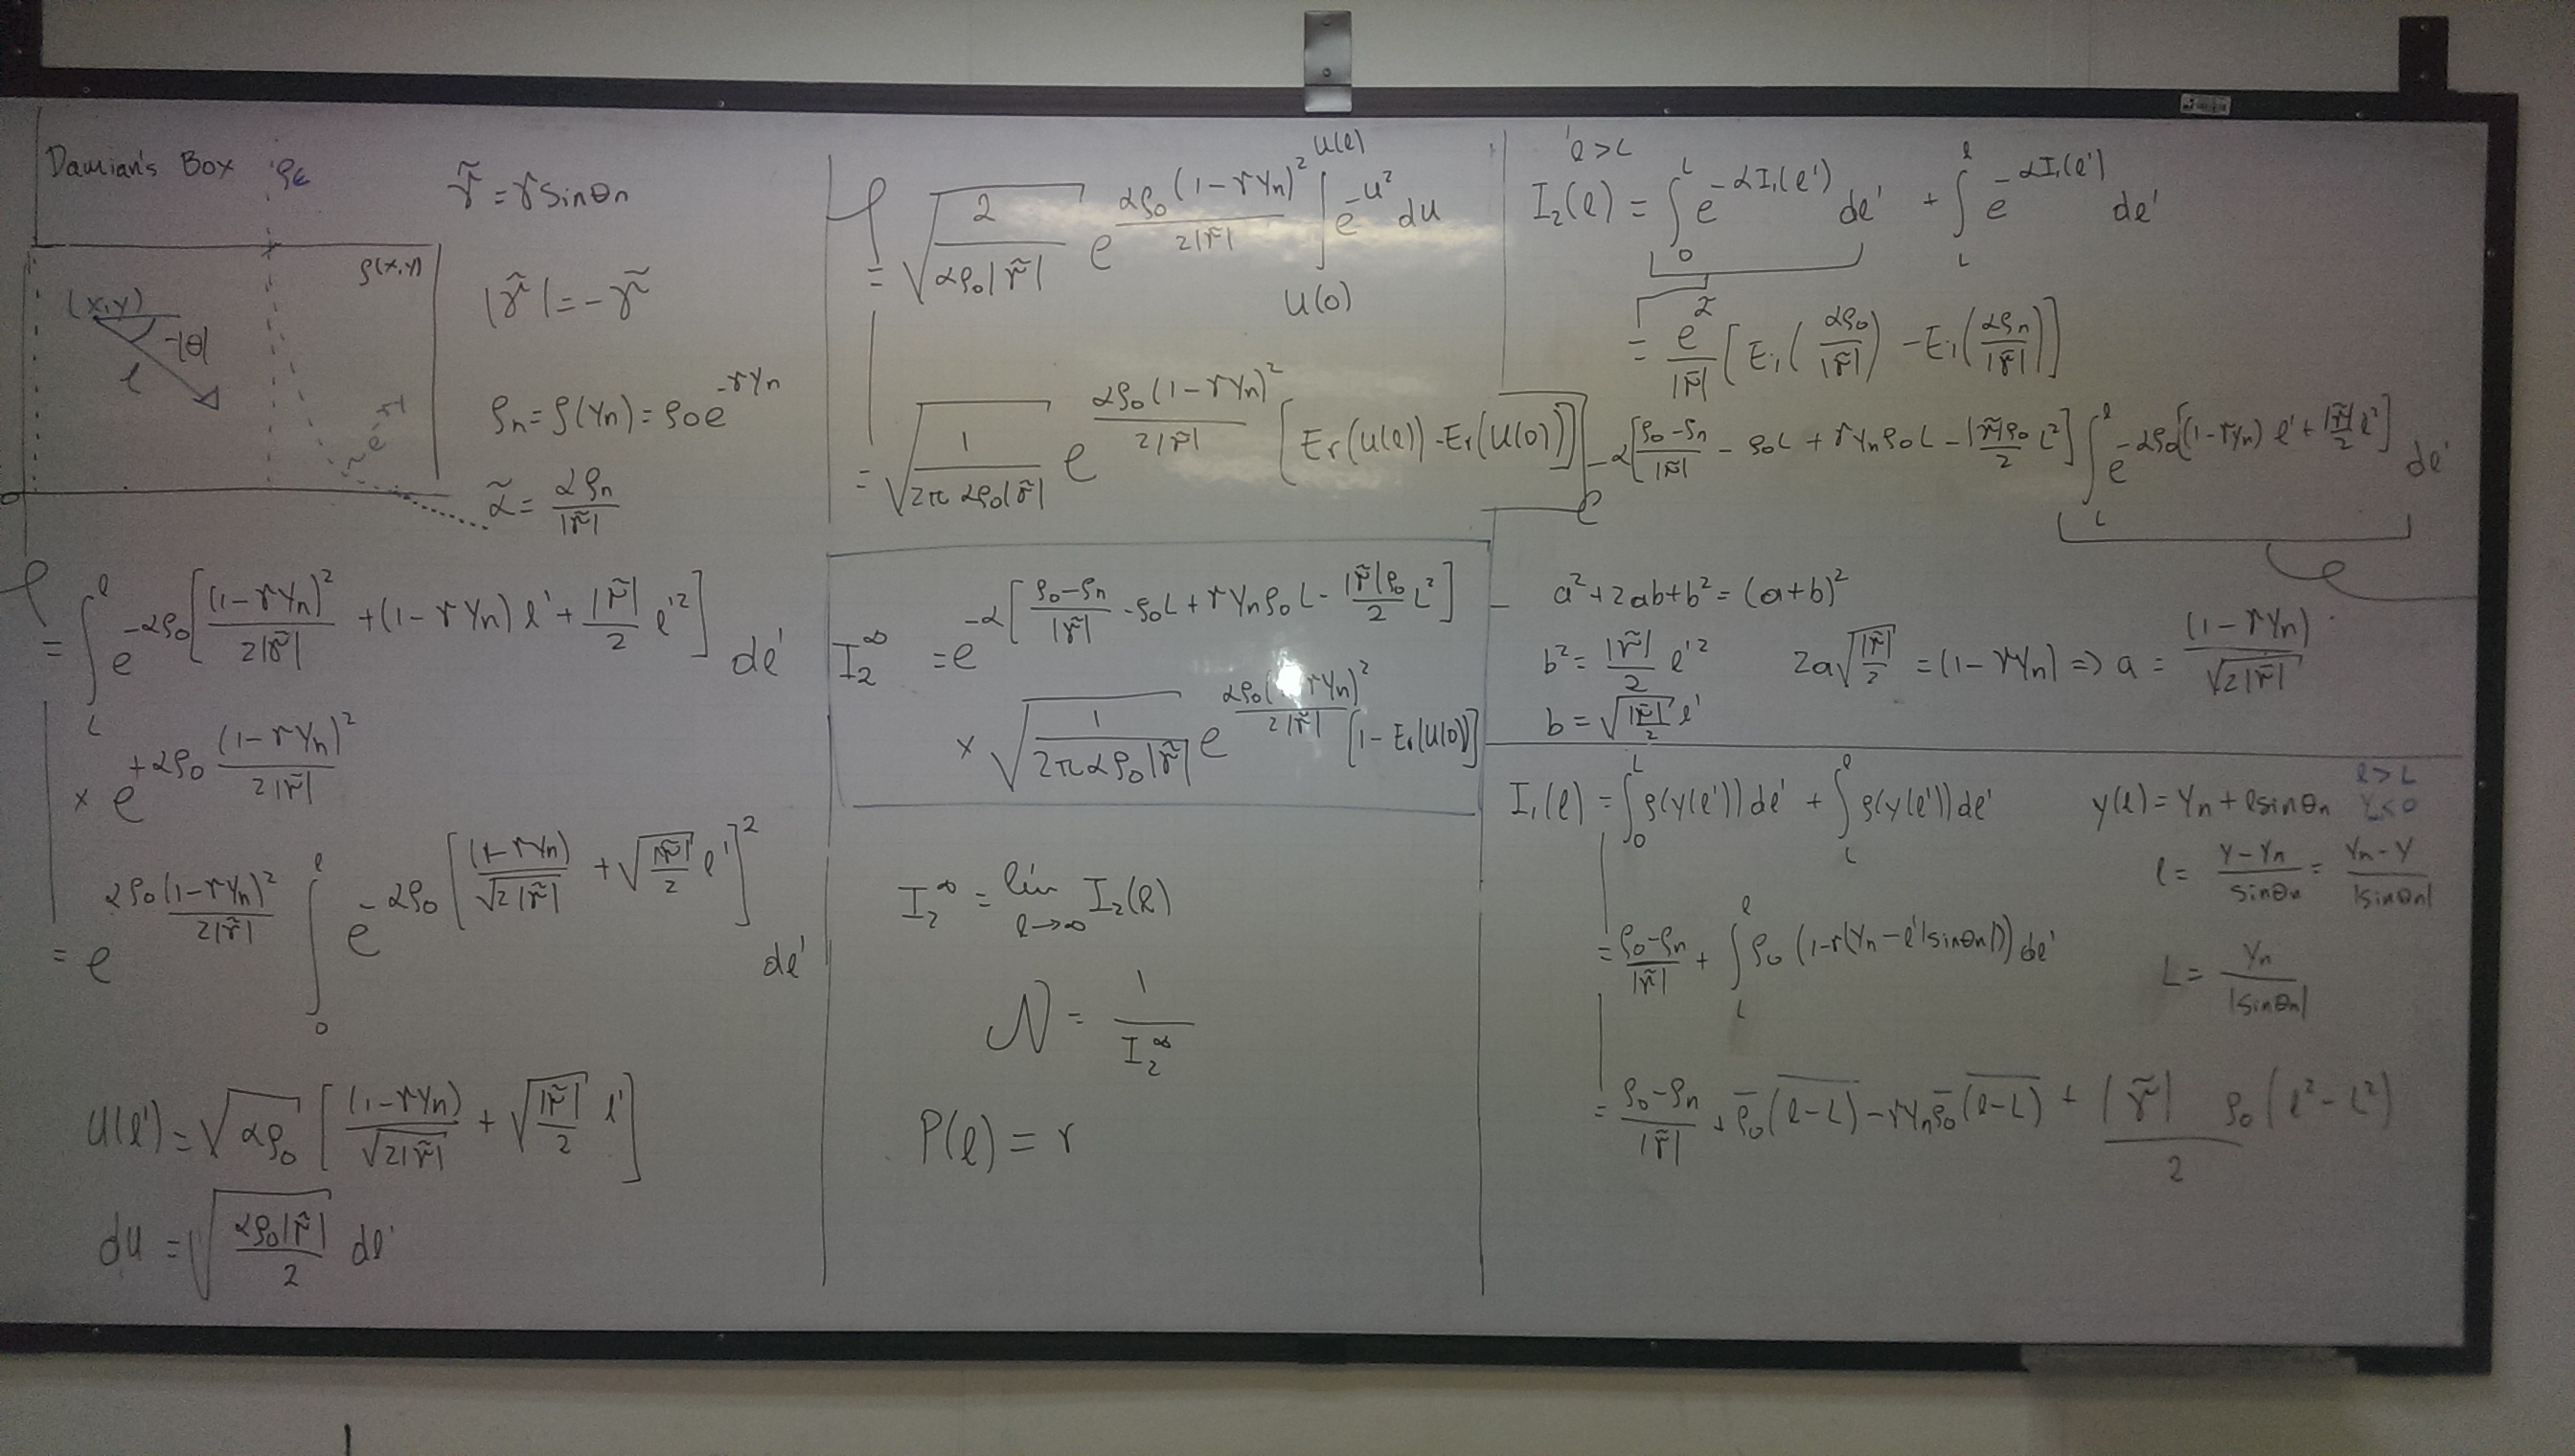 Damian's Box ρε
γ̃ = γ sinθn
ρ(x,y)
(x,y)
-|θ|
l
~e^-γy
0
|γ̃| = -γ̃
ρn = ρ(Yn) = ρ0 e^{-γYn}
α̃ = αρn/|γ̃|
= ∫_L^l e^{-αρ0[(1-γYn)²/(2|γ̃|) + (1-γYn)l' + (|γ̃|/2) l'²]} dl'
× e^{+αρ0 (1-γYn)²/(2|γ̃|)}
= e^{αρ0(1-γYn)²/(2|γ̃|)} ∫_0^l e^{-αρ0[(1-γYn)/√(2|γ̃|) + √(|γ̃|/2) l']²} dl'
U(l') = √(αρ0) [(1-γYn)/√(2|γ̃|) + √(|γ̃|/2) l']
du = √(αρ0|γ̃|/2) dl'
= √(2/(αρ0|γ̃|)) e^{αρ0(1-γYn)²/(2|γ̃|)} ∫_{U(0)}^{U(l)} e^{-u²} du
= √(1/(2π αρ0|γ̃|)) e^{αρ0(1-γYn)²/(2|γ̃|)} [Er(U(l)) - Er(U(0))]
I2^∞ = e^{-α[(ρ0-ρn)/|γ̃| - ρ0L + γYnρ0L - (|γ̃|ρ0/2) L²]}
× √(1/(2παρ0|γ̃|)) e^{αρ0(1-γYn)²/(2|γ̃|)} [1 - Er(U(0))]
I2^∞ = lim_{l→∞} I2(l)
N = 1/I2^∞
P(l) = r
l > L
I2(l) = ∫_0^L e^{-αI1(l')} dl' + ∫_L^l e^{-αI1(l')} dl'
= e^{α̃}/|γ̃| [Ei(αρ0/|γ̃|) - Ei(αρn/|γ̃|)]
e^{-α[(ρ0-ρn)/|γ̃| - ρ0L + γYnρ0L - (|γ̃|ρ0/2) L²]} ∫_L^l e^{-αρ0[(1-γYn)l' + (|γ̃|/2) l'²]} dl'
a² + 2ab + b² = (a+b)²
b² = (|γ̃|/2) l'² 2a√(|γ̃|/2) = (1-γYn) => a = (1-γYn)/√(2|γ̃|)
b = √(|γ̃|/2) l'
I1(l) = ∫_0^L ρ(y(l'))dl' + ∫_L^l ρ(y(l'))dl' y(l) = Yn + l sinθn l>L Y<0
l = (Y-Yn)/sinθn = (Yn-Y)/|sinθn|
= (ρ0-ρn)/|γ̃| + ∫_L^l ρ0 (1-γ(Yn - l'|sinθn|)) dl'
L = Yn/|sinθn|
= (ρ0-ρn)/|γ̃| + ρ0(l-L) - γYnρ0(l-L) + (|γ̃|/2) ρ0(l²-L²)